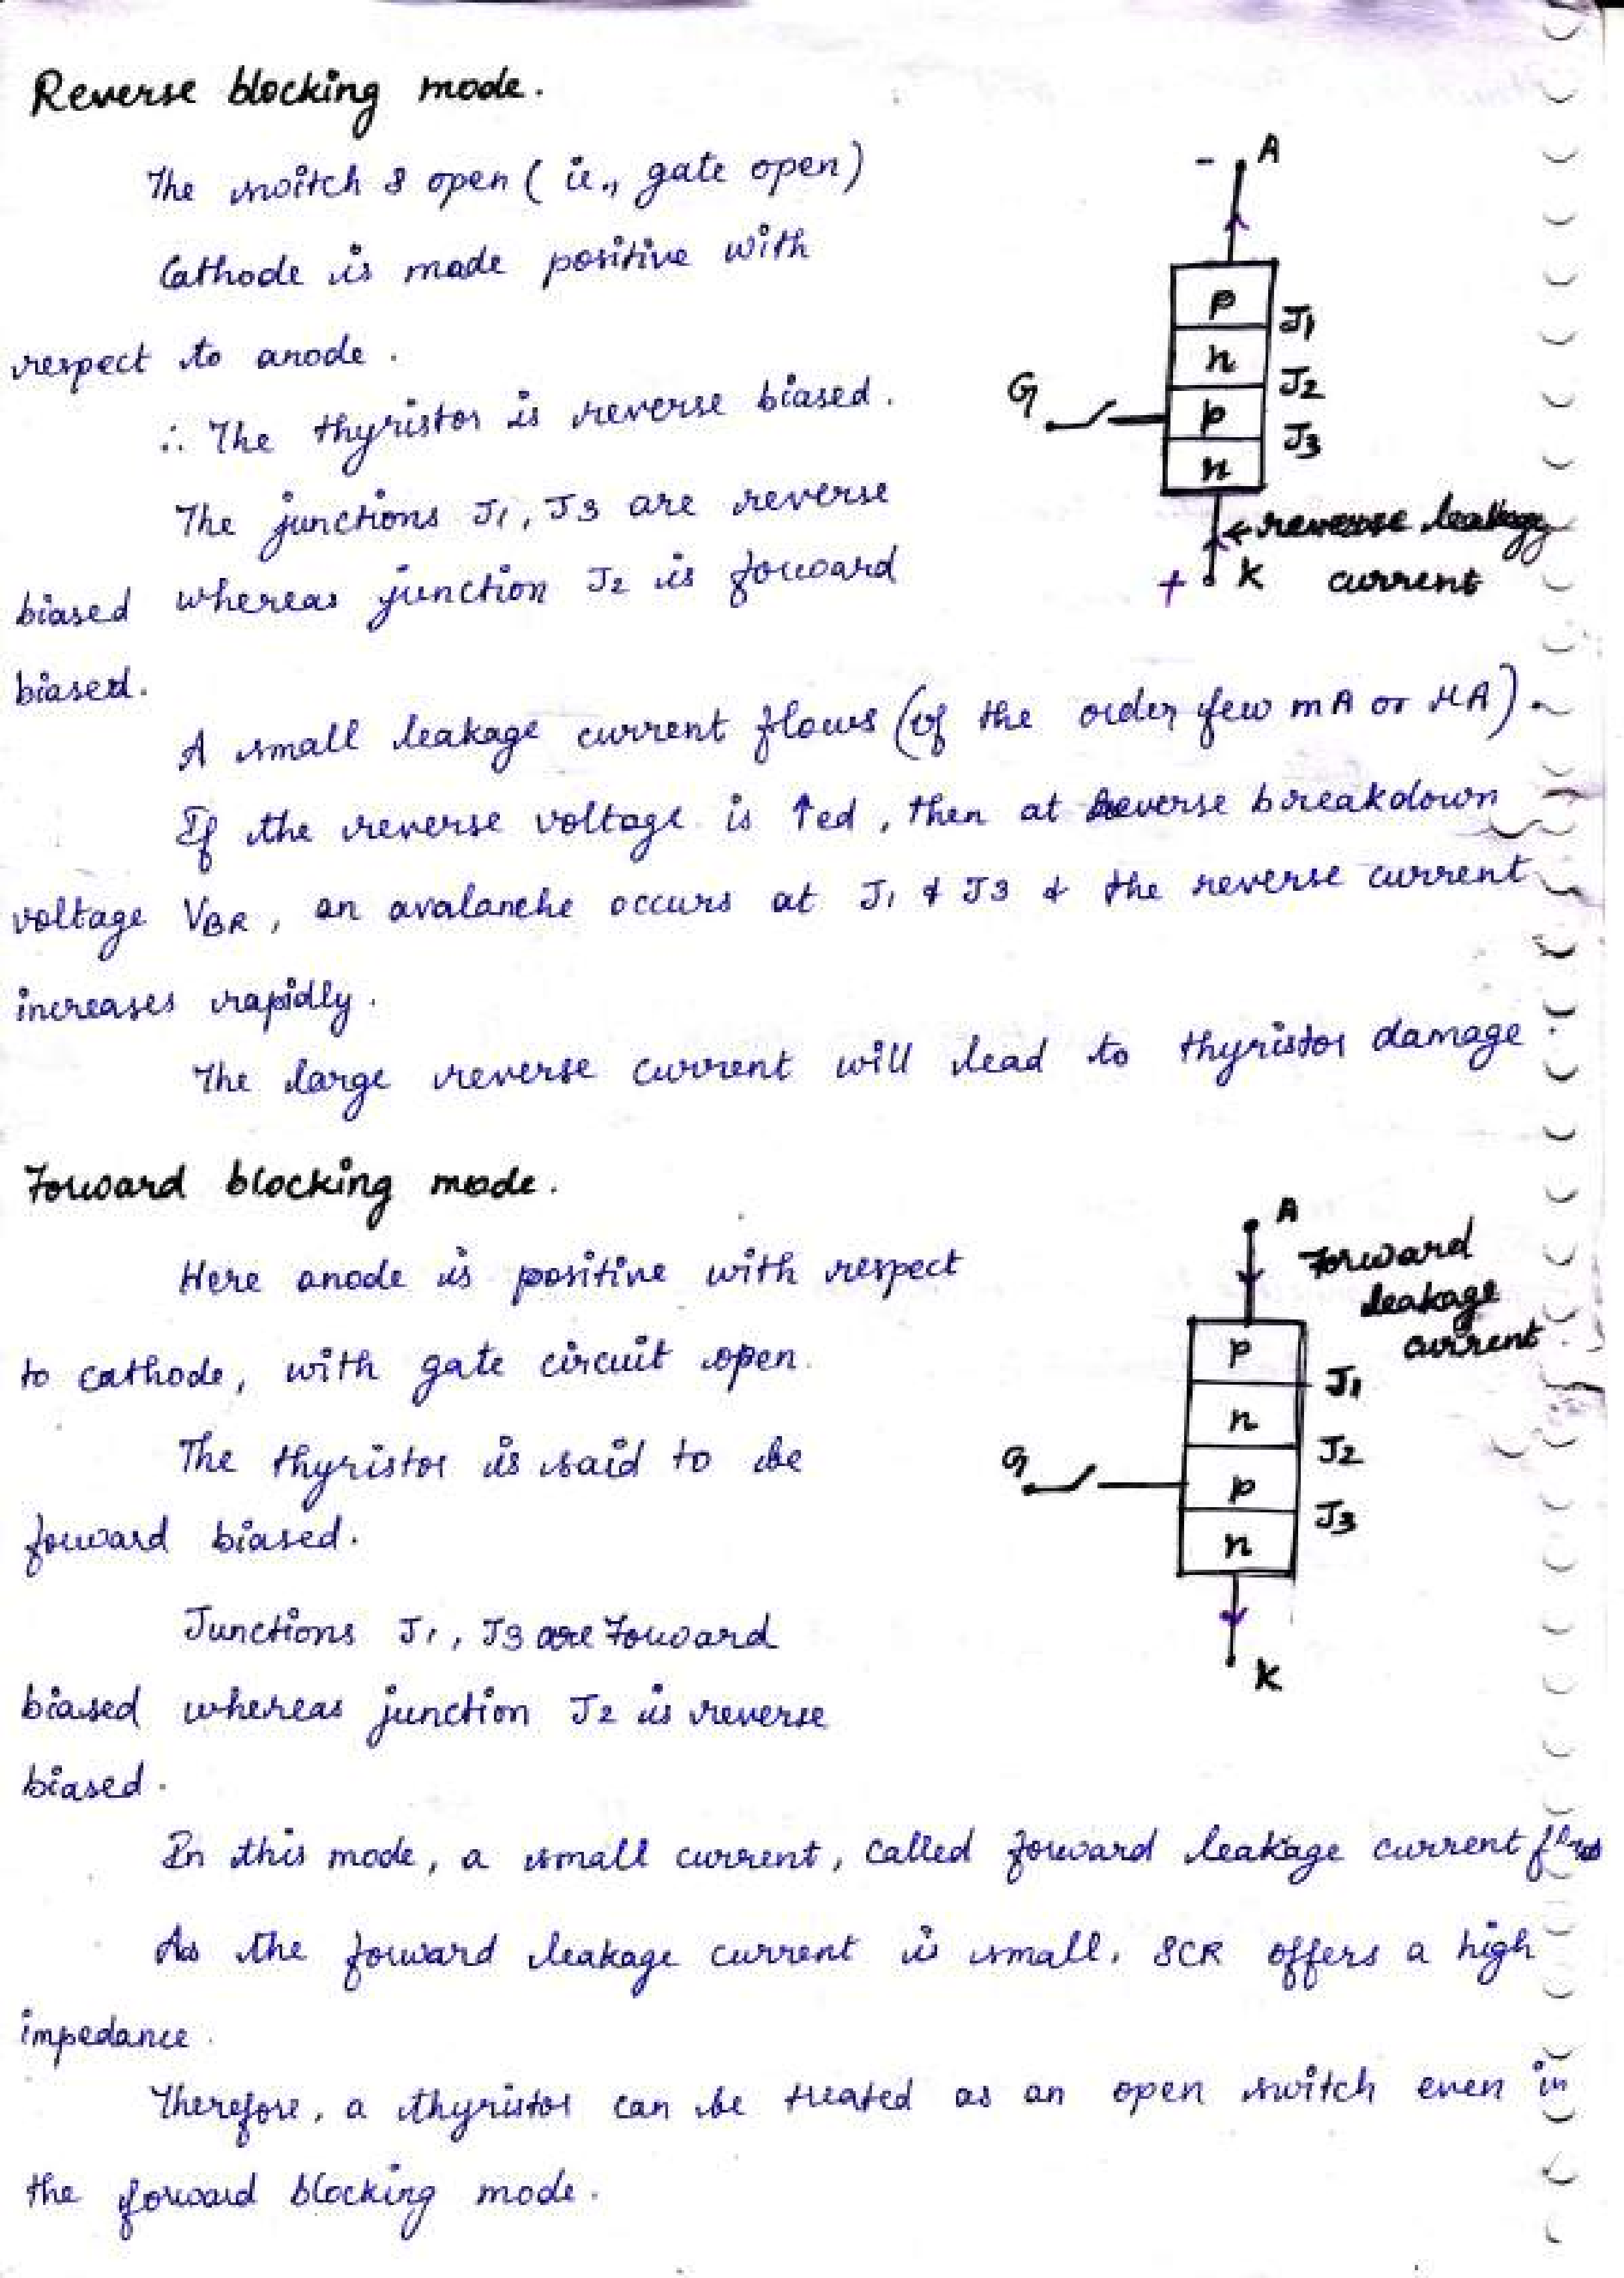 Reverse blocking mode.
The switch S open (ie., gate open)
Cathode is made positive with
respect to anode.
∴ The thyristor is reverse biased.
The junctions J1, J3 are reverse
biased whereas junction J2 is forward
biased.
- A
p
J1
n
J2
G
p
J3
n
← reverse leakage
+ K current
A small leakage current flows (of the order few mA or μA).
If the reverse voltage is ↑ed, then at Reverse breakdown
voltage VBR, an avalanche occurs at J1 & J3 & the reverse current
increases rapidly.
The large reverse current will lead to thyristor damage.
Forward blocking mode.
Here anode is positive with respect
to cathode, with gate circuit open.
The thyristor is said to be
forward biased.
Junctions J1, J3 are Forward
biased whereas junction J2 is reverse
biased.
A
Forward
leakage
current
p
J1
n
J2
G
p
J3
n
K
In this mode, a small current, called forward leakage current flows
As the forward leakage current is small, SCR offers a high
impedance.
Therefore, a thyristor can be treated as an open switch even in
the forward blocking mode.